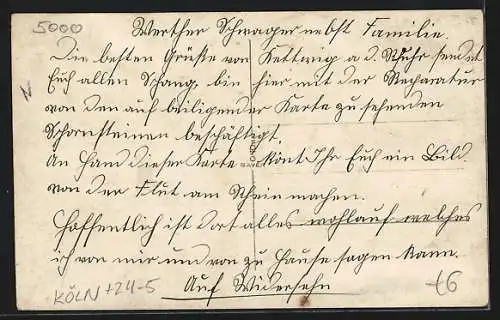 5000
Werther Schwager nebst Familie.
Die besten Grüße von Kettwig a. d. Ruhr sendet
Euch allen Franz, bin hier mit der Reparatur
von den auf beiligender Karte zu sehenden
Schornsteinen beschäftigt.
An Hand dieser Karte könt Ihr Euch ein Bild
von der Flut am Rhein machen.
Hoffentlich ist dort alles wohlauf welches
ich von mir und von zu Hause sagen kann.
Auf Widersehn
KÖLN +24-5